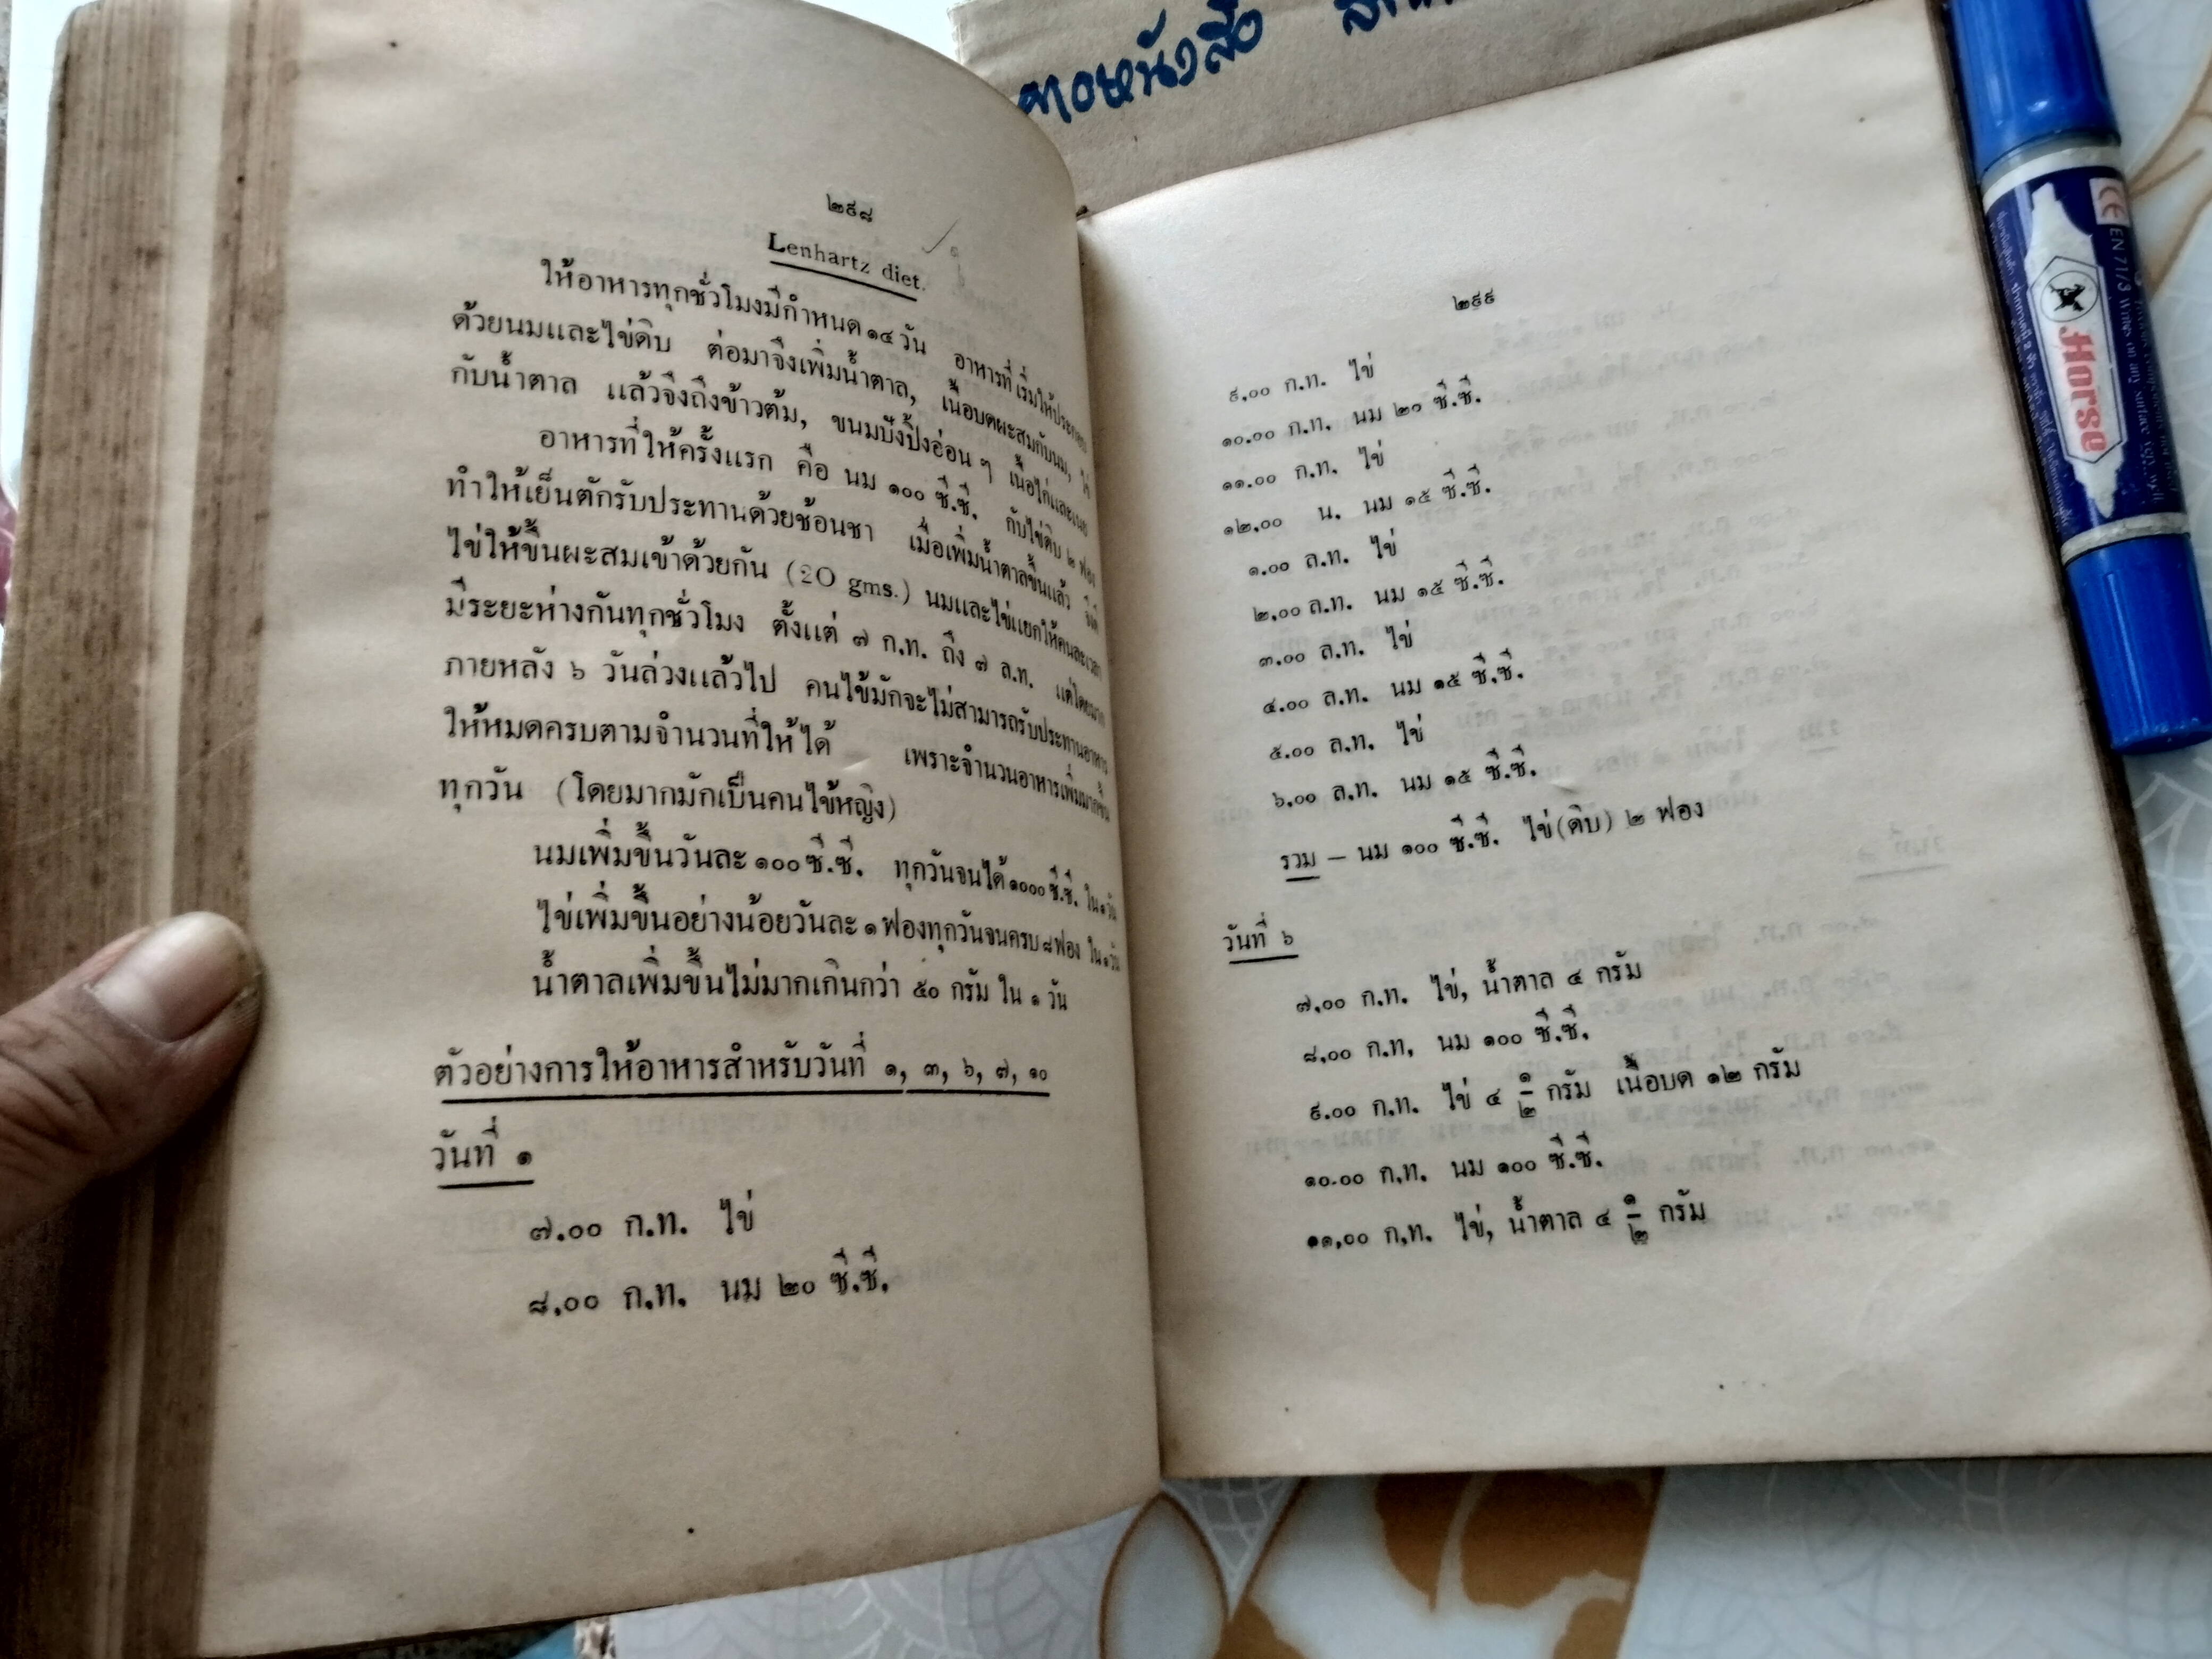 ๒๙๘
Lenhartz diet.
ให้อาหารทุกชั่วโมงมีกำหนด ๑๔ วัน อาหารที่เริ่มให้ประกอบ
ด้วยนมและไข่ดิบ ต่อมาจึงเพิ่มน้ำตาล, เนื้อบดผสมกับนม, ไข่
กับน้ำตาล แล้วจึงถึงข้าวต้ม, ขนมปังปิ้งอ่อน ๆ เนื้อไก่และเนย
อาหารที่ให้ครั้งแรก คือ นม ๑๐๐ ซี.ซี. กับไข่ดิบ ๒ ฟอง
ทำให้เย็นตักรับประทานด้วยช้อนชา เมื่อเพิ่มน้ำตาลขึ้นแล้ว
ไข่ให้ขึ้นผะสมเข้าด้วยกัน (20 gms.) นมและไข่แยกให้คนละเวลา
มีระยะห่างกันทุกชั่วโมง ตั้งแต่ ๗ ก.ท. ถึง ๗ ล.ท. แต่โดยมาก
ภายหลัง ๖ วันล่วงแล้วไป คนไข้มักจะไม่สามารถรับประทานอาหาร
ให้หมดครบตามจำนวนที่ให้ได้ เพราะจำนวนอาหารเพิ่มมากขึ้น
ทุกวัน (โดยมากมักเป็นคนไข้หญิง)
นมเพิ่มขึ้นวันละ ๑๐๐ ซี.ซี. ทุกวันจนได้ ๑๐๐๐ ซี.ซี. ใน ๑ วัน
ไข่เพิ่มขึ้นอย่างน้อยวันละ ๑ ฟองทุกวันจนครบ ๘ ฟอง ใน ๑ วัน
น้ำตาลเพิ่มขึ้นไม่มากเกินกว่า ๕๐ กรัม ใน ๑ วัน
ตัวอย่างการให้อาหารสำหรับวันที่ ๑, ๓, ๖, ๗, ๑๐
วันที่ ๑
๗.๐๐ ก.ท. ไข่
๘.๐๐ ก.ท. นม ๒๐ ซี.ซี.
ดาอหนังสือ
๒๙๙
๙.๐๐ ก.ท. ไข่
๑๐.๐๐ ก.ท. นม ๒๐ ซี.ซี.
๑๑.๐๐ ก.ท. ไข่
๑๒.๐๐ น. นม ๑๕ ซี.ซี.
๑.๐๐ ล.ท. ไข่
๒.๐๐ ล.ท. นม ๑๕ ซี.ซี.
๓.๐๐ ล.ท. ไข่
๔.๐๐ ล.ท. นม ๑๕ ซี.ซี.
๕.๐๐ ล.ท. ไข่
๖.๐๐ ล.ท. นม ๑๕ ซี.ซี.
รวม — นม ๑๐๐ ซี.ซี. ไข่(ดิบ) ๒ ฟอง
วันที่ ๖
๗.๐๐ ก.ท. ไข่, น้ำตาล ๔ กรัม
๘.๐๐ ก.ท. นม ๑๐๐ ซี.ซี.
๙.๐๐ ก.ท. ไข่ ๔ ๑/๒ กรัม เนื้อบด ๑๒ กรัม
๑๐.๐๐ ก.ท. นม ๑๐๐ ซี.ซี.
๑๑.๐๐ ก.ท. ไข่, น้ำตาล ๔ ๑/๒ กรัม
Horse
CE EN 71/3